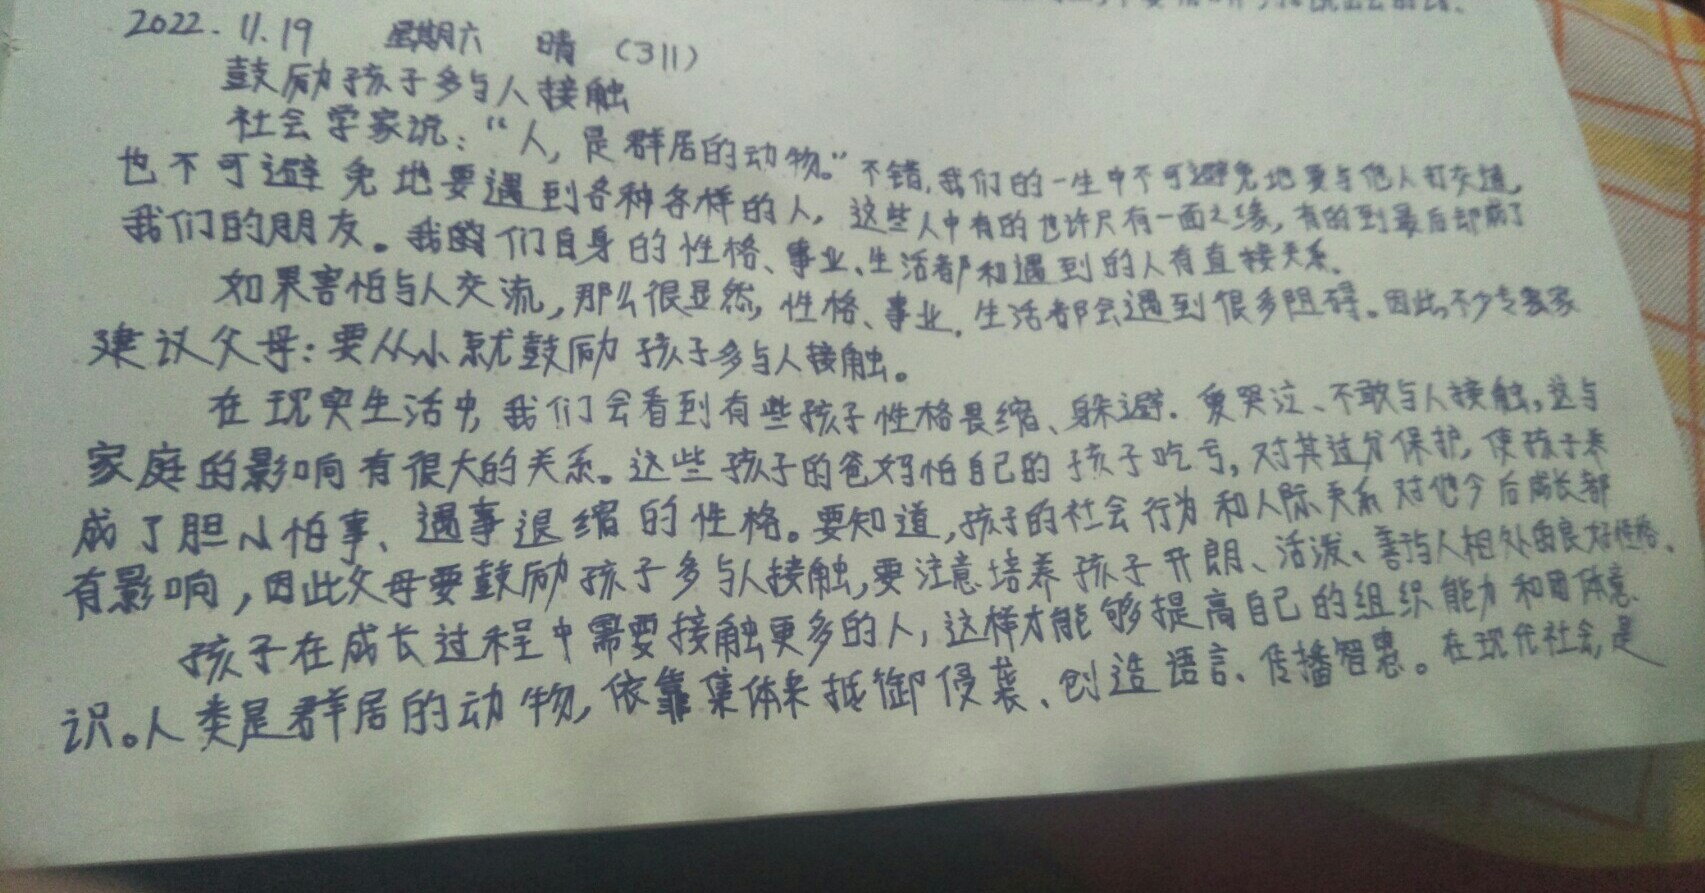 2022.11.19 星期六 晴 (311)
鼓励孩子多与人接触
社会学家说:“人,是群居的动物。”不错,我们的一生中不可避免地要与他人打交道,
也不可避免地要遇到各种各样的人,这些人中有的也许只有一面之缘,有的到最后却成了
我们的朋友。我们自身的性格、事业、生活都和遇到的人有直接关系。
如果害怕与人交流,那么很显然,性格、事业、生活都会遇到很多阻碍。因此,不少专家
建议父母:要从小就鼓励孩子多与人接触。
在现实生活中,我们会看到有些孩子性格畏缩、躲避、爱哭泣、不敢与人接触,这与
家庭的影响有很大的关系。这些孩子的爸妈怕自己的孩子吃亏,对其过分保护,使孩子养
成了胆小怕事、遇事退缩的性格。要知道,孩子的社会行为和人际关系对他今后成长都
有影响,因此父母要鼓励孩子多与人接触,要注意培养孩子开朗、活泼、善与人相处的良好性格。
孩子在成长过程中需要接触更多的人,这样才能够提高自己的组织能力和团体意
识。人类是群居的动物,依靠集体来抵御侵袭、创造语言、传播智慧。在现代社会,是